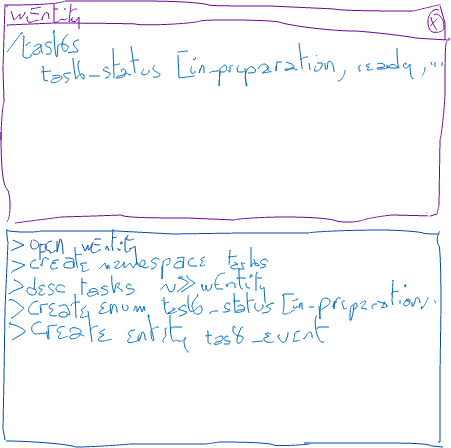 wEntity
/tasks
task_status [in_preparation, ready, ...
> open wEntity
> create namespace tasks
> desc tasks v>> wEntity
> create enum task_status [in_preparation, .
> Create entity task_event